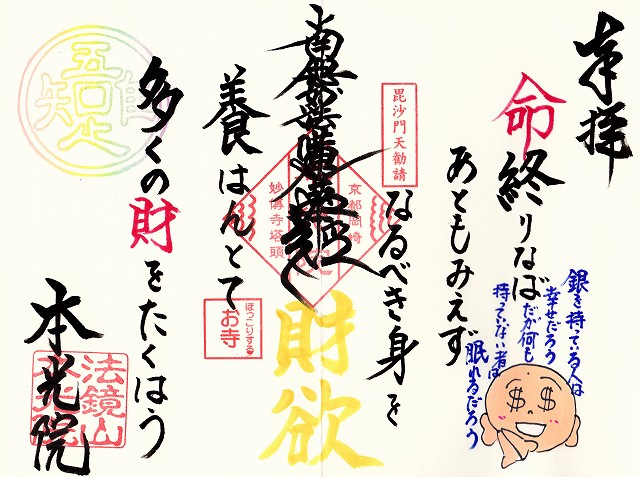 奉拝
命終りなば
銀を持っている人は
幸せだろう
だが何も
持っていない者は
眠れるだろう
$ $
あともみえず
なるべき身を
毘沙門天勧請
京都岡崎
南無妙法蓮華経
財欲
妙傳寺塔頭
養はんとて
ほっこりする
お寺
多くの財をたくはう
吾唯足知
本光院
法鏡山
本光院